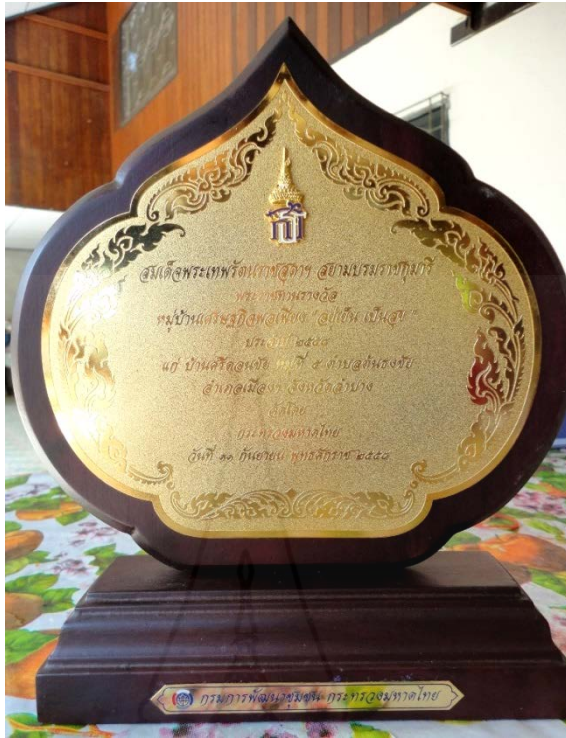 สมเด็จพระเทพรัตนราชสุดาฯ สยามบรมราชกุมารี
พระราชทานรางวัล
หมู่บ้านเศรษฐกิจพอเพียง "อยู่เย็น เป็นสุข"
ประจำปี ๒๕๕๘
แก่ บ้านศรีดอนชัย หมู่ที่ ๕ ตำบลต้นธงชัย
อำเภอเมืองฯ จังหวัดลำปาง
จัดโดย
กระทรวงมหาดไทย
วันที่ ๑๑ กันยายน พุทธศักราช ๒๕๕๘
กรมการพัฒนาชุมชน กระทรวงมหาดไทย